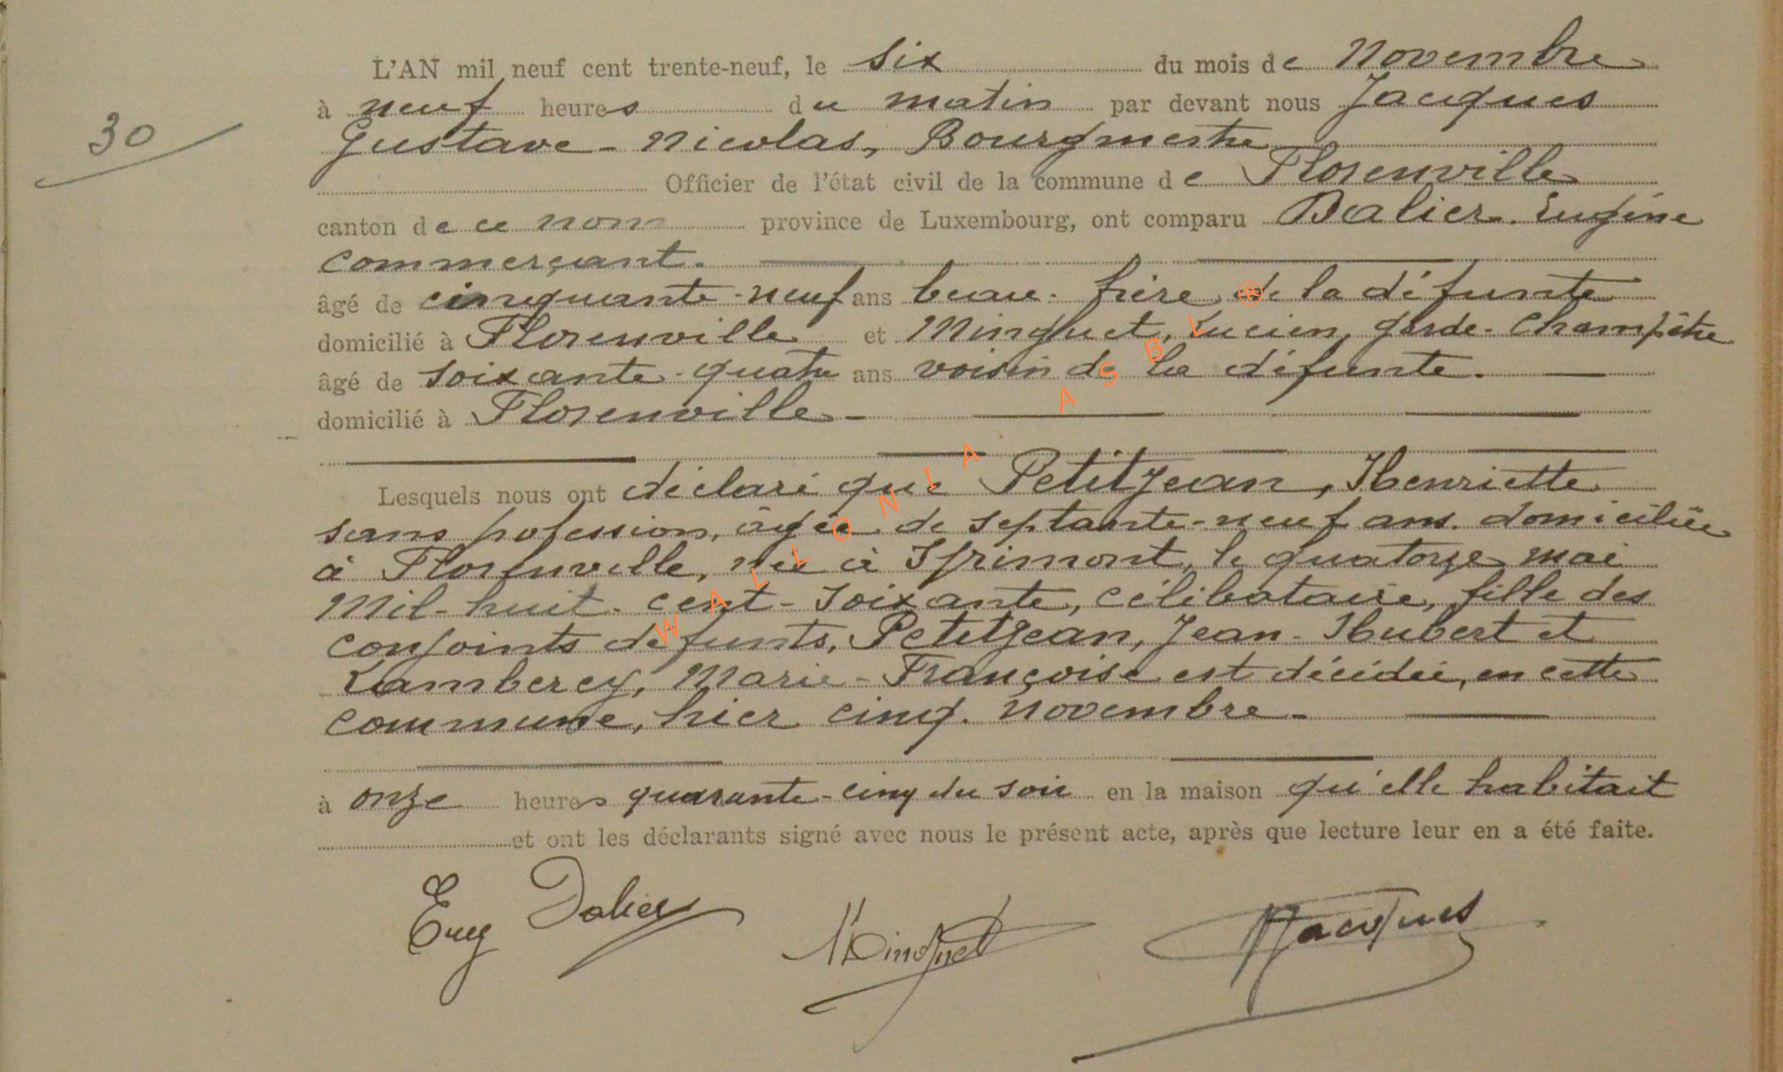 30
L'AN mil neuf cent trente-neuf, le six du mois de Novembre
à neuf heures du matin par devant nous Jacques
Gustave - Nicolas, Bourgmestre
Officier de l'état civil de la commune de Florenville
canton de ce nom province de Luxembourg, ont comparu Dalier Eugène
commerçant.
âgé de cinquante-neuf ans beau-frère de la défunte
domicilié à Florenville et Minguet, Lucien, garde-champêtre
âgé de soixante-quatre ans voisin de la défunte.
domicilié à Florenville -
Lesquels nous ont déclaré que Petitjean, Henriette
sans profession, âgée de septante-neuf ans. domiciliée
à Florenville, née à Sprimont, le quatorze mai
Mil-huit-cent-soixante, célibataire, fille des
conjoints défunts, Petitjean, Jean-Hubert et
Lambercy, Marie-Françoise est décédée, en cette
commune, hier cinq novembre -
à onze heures quarante-cinq du soir en la maison qu'elle habitait
et ont les déclarants signé avec nous le présent acte, après que lecture leur en a été faite.
Eug Dalier Minguet Jacques
WALLONIA ASBL